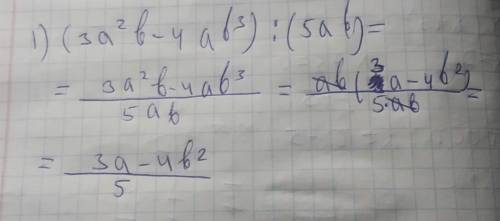 1) (3a²b-4ab³):(5ab)=
= 3a²b-4ab³ / 5ab = ab(3a-4b²) / 5·ab =
= 3a-4b² / 5